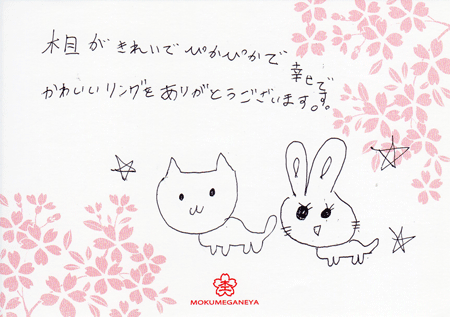 木目がきれいでぴかぴかで
幸せです。
かわいいリングをありがとうございます。
MOKUMEGANEYA